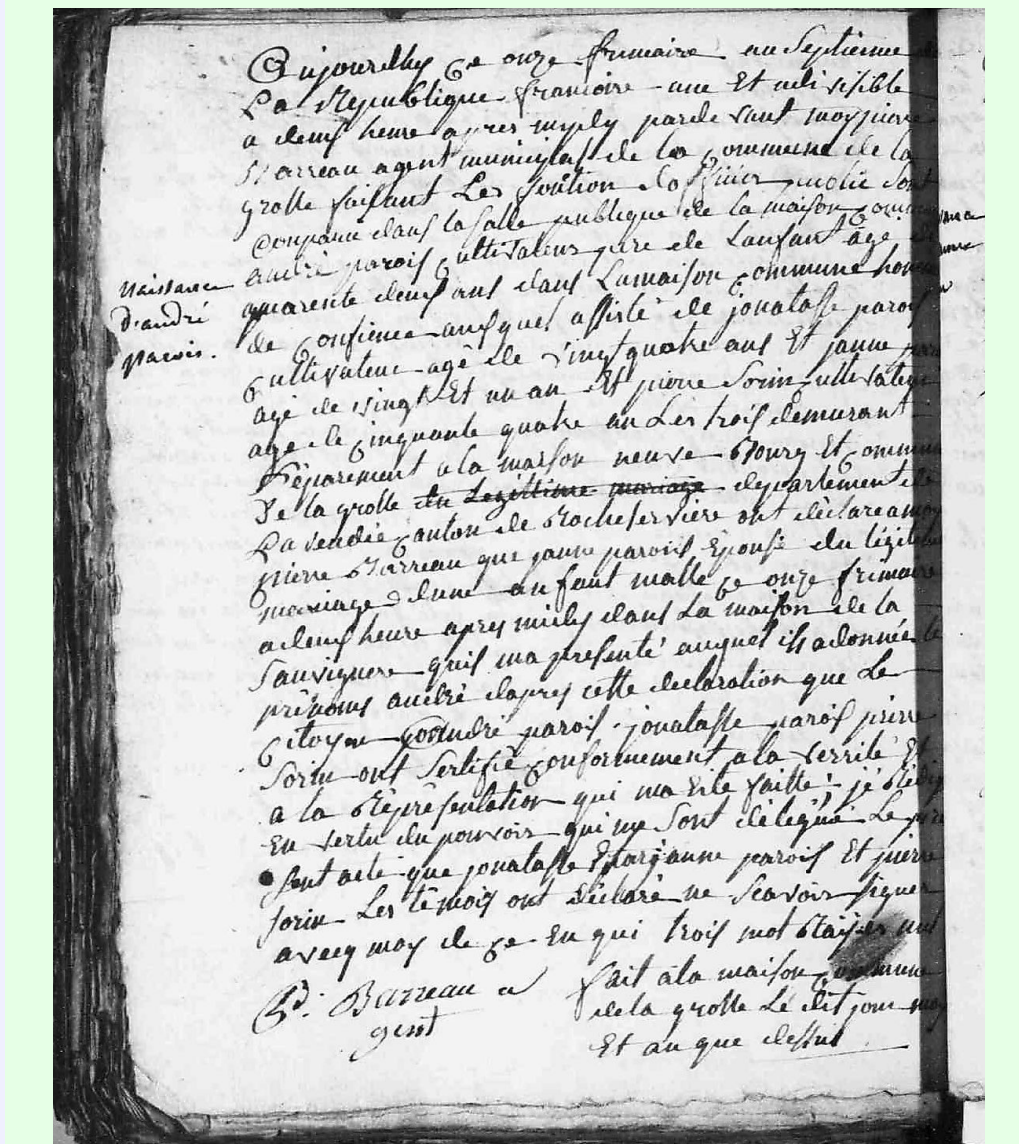 Aujourdhuy ce onze frimaire an Septieme de
La Republique francoire une Et udivisible
a deux heure apres midy parde vant moy pierre
Barreau agent municipal de la commune de la
grolle faisant Les fontion doffisier public sont
Comparu dans la salle publique de la maison commune
naissance
d'andré
parois.
andré parois cultivateur pere de Lanfant âgé de
quarente deux ans dans Lamaison commune homme
de confience auquel assisté de jonatasse parois
cultivateur agé de vingt quatre ans Et janne
agé de vingt Et un an Et pierre Sorin cultivateur
age de cinquante quatre an Les trois demurant
séparement a la maison neuve Bourg Et commune
De la grolle du Legittime mariage departement de
La vendée canton de Rocheservière ont déclaré a moy
pierre Barreau que janne parois Eponse du légitime
mariage dune anfant malle ce onze frimaire
a deux heure apres midy dans La maison de la
Sauvignere quil ma presenté auquel ils adonnée le
prénoms andré dapres cette declaration que Le
citoyen andré parois jonatasse parois pierre
Sorin ont Sertifié conformement a la verrité Et
a la Répresentation qui ma Eité faitte je Redige
En vertu du pouvoir qui me Sont délégué Le pré
sent acte que jonatasse janne parois Et pierre
sorin Les témois ont déclaré ne Scavoir signer
avecq moy de ce En qui trois mot Raiyer nul
fait a la maison commune
de la grolle Lé dit jour moy
Et an que dessur
P: Barreau a
gent